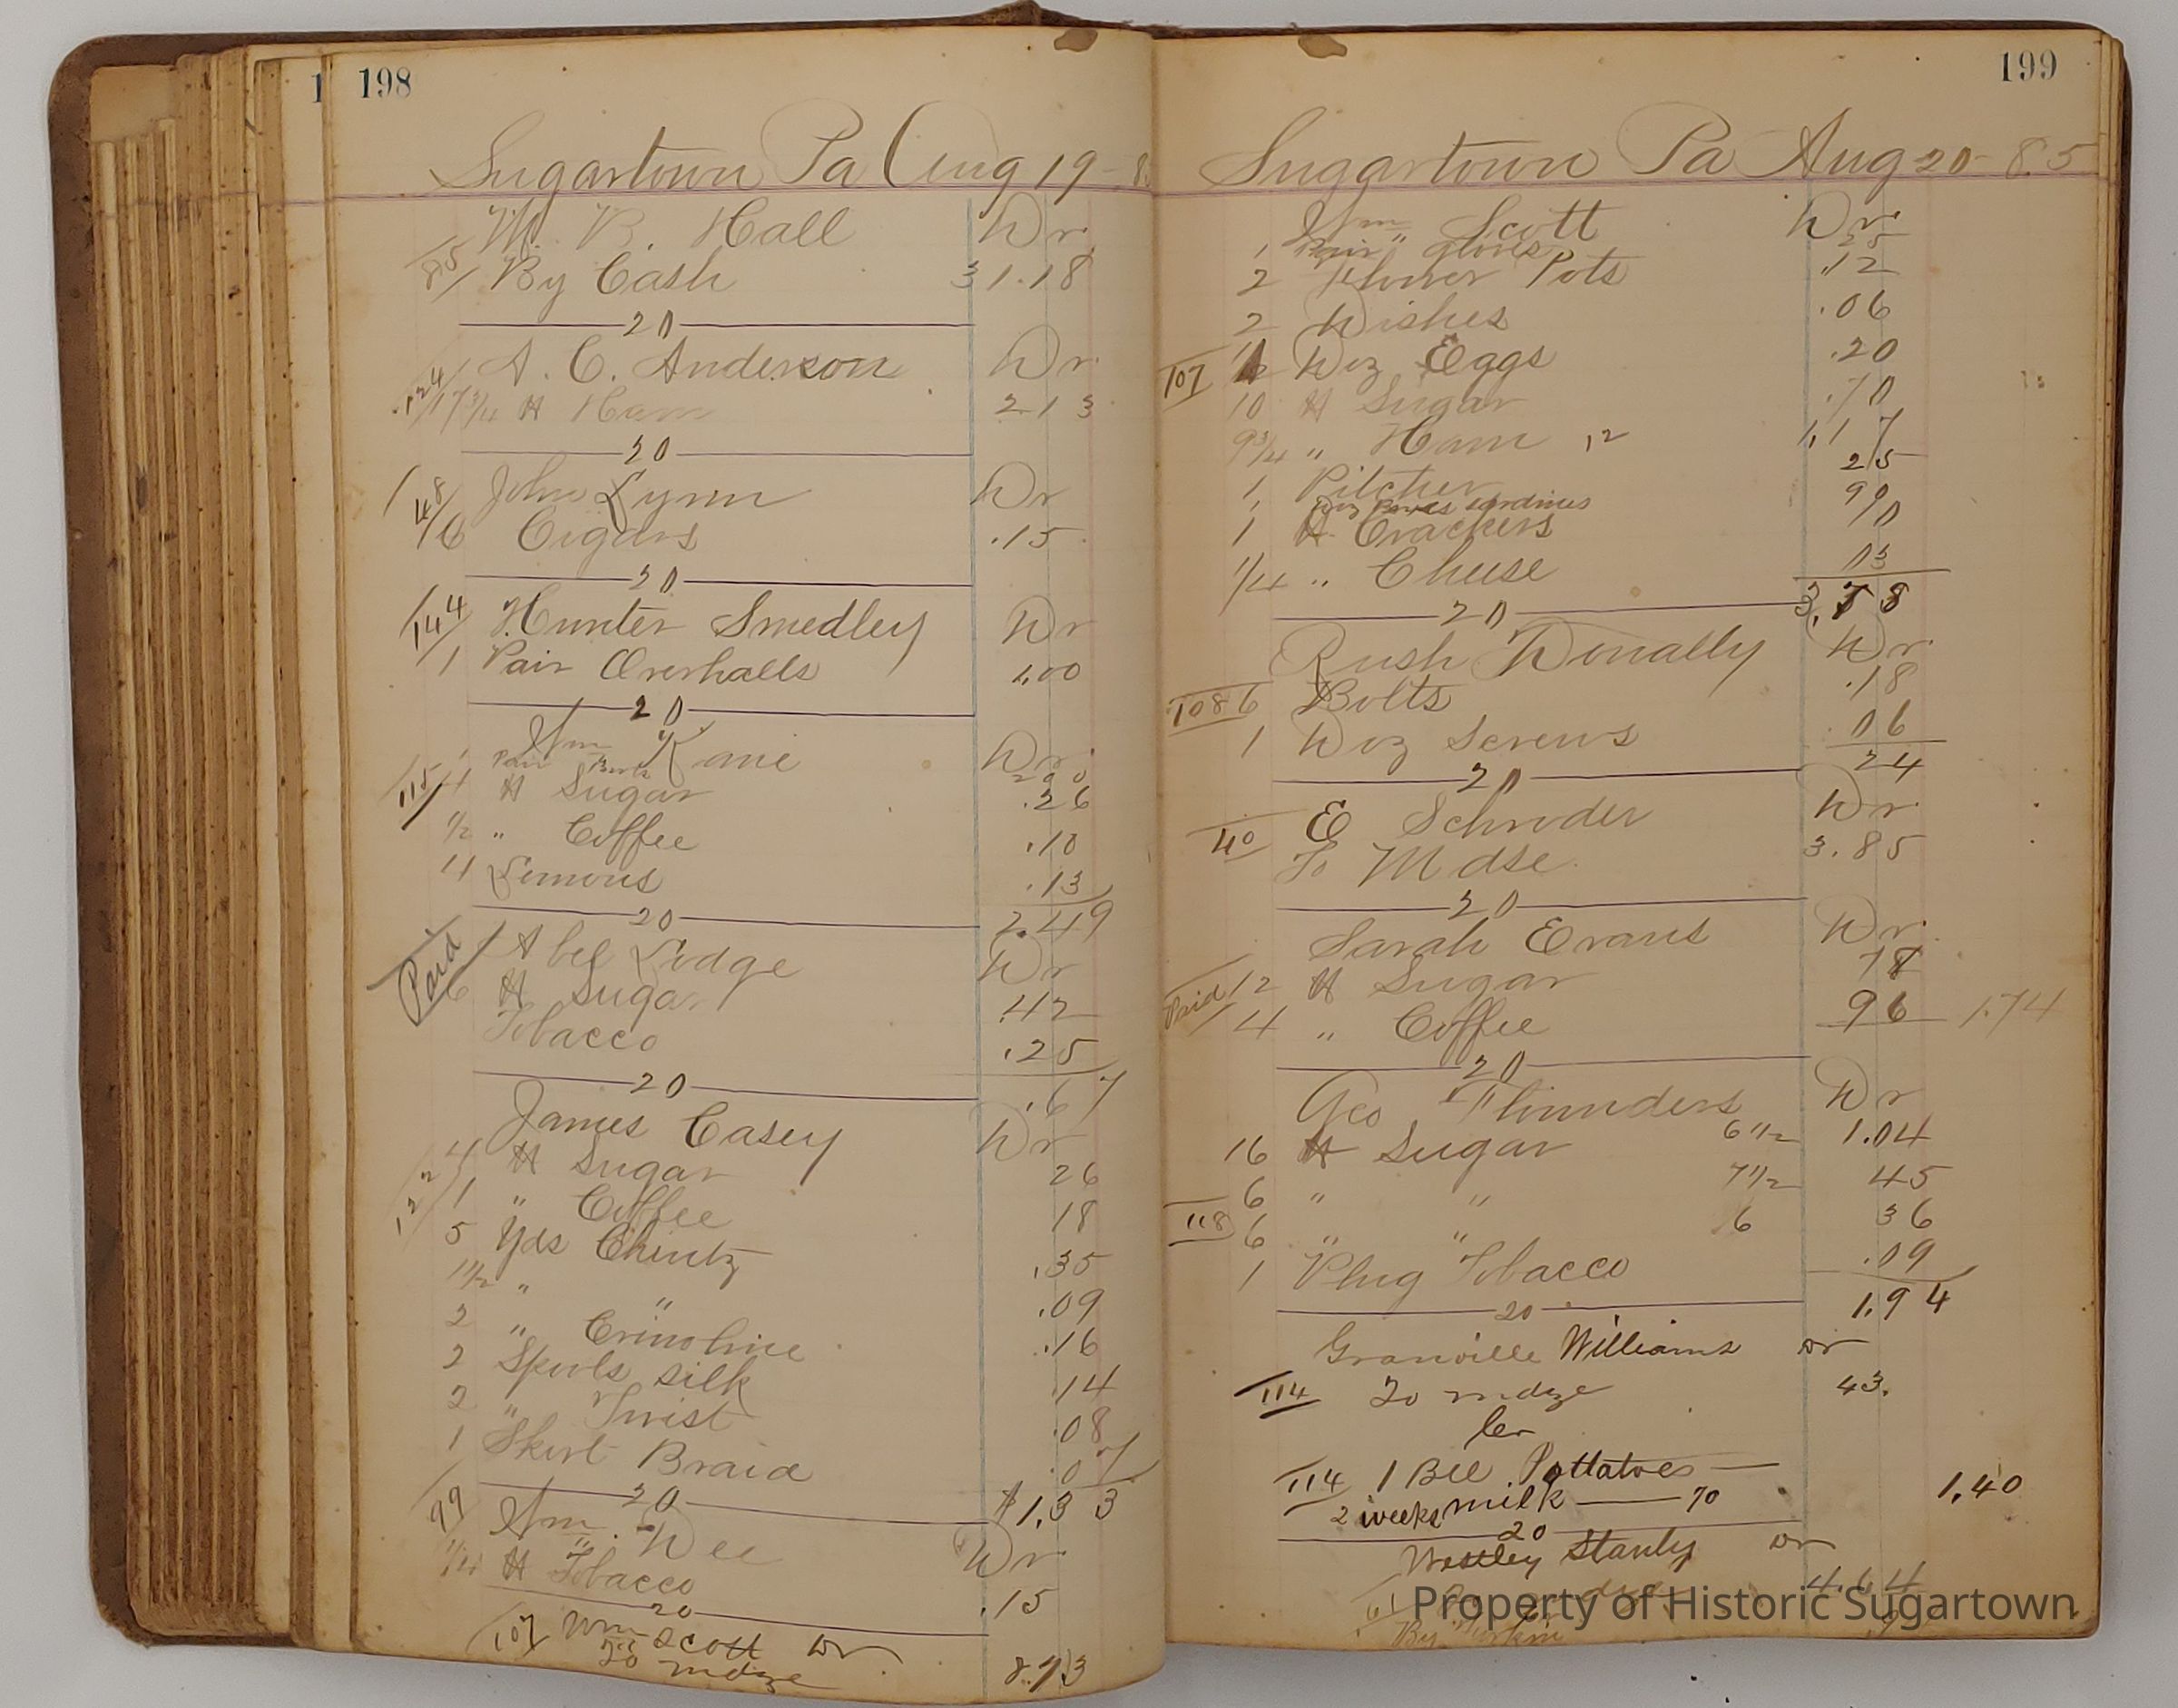 1 198
Sugartown Pa Aug 19-8
W. B. Hall Dr
85/ By Cash 31.18
20
A. C. Anderson Dr
124/ 17 3/4 # Ham 2 13
20
48/ John Lynn Dr
6 Cigars .15
20
144/ Hunter Smedley Dr
1 Pair Overhalls 1.00
20
Wm Kane Dr
1 Pair 2 00
115/ 4 # Sugar .26
1/2 " Coffee .10
4 Lemons .13
20 2.49
Paid Abel Lodge Dr
6 # Sugar .42
Tobacco .25
20 .67
James Casey Dr
122/ 4 # Sugar 26
1 " Coffee 18
5 Yds Chintz .35
1 1/2 " " .09
2 " Crinoline .16
2 Spools silk 14
2 " Twist .08
1 Skirt Braid .07
20 $1.33
99/ Wm. Dee Dr
1/4 # Tobacco .15
20
107 Wm Scott Dr
To mdze 8.73
199
Sugartown Pa Aug 20-85
Wm Scott Dr
1 Pair gloves 25
2 Flower Pots .12
2 Dishes .06
107 1 Doz Eggs .20
10 # Sugar .70
9 3/4 " Ham 12 1.17
1 Pitcher 25
1 Doz Boxes sardines 90
1 # Crackers 10
1/4 " Cheese 03
20 3.78
Rush Donally Dr
108 6 Bolts .18
1 Doz Screws 06
20 24
40 E Schroder Dr
To Mdse. 3.85
20
Sarah Evans Dr
Paid 12 # Sugar 78
4 " Coffee 96 1.74
20
Geo Flounders Dr
16 # Sugar 6 1/2 1.04
6 " " 7 1/2 45
118 6 " " 6 36
1 Plug Tobacco .09
20 1.94
Granville Williams Dr
114 To mdze 43.
Cr
114 1 Bu Pottatoes
2 weeks milk 70 1.40
20
Westley Stanly Dr
61 4.64
By
Property of Historic Sugartown